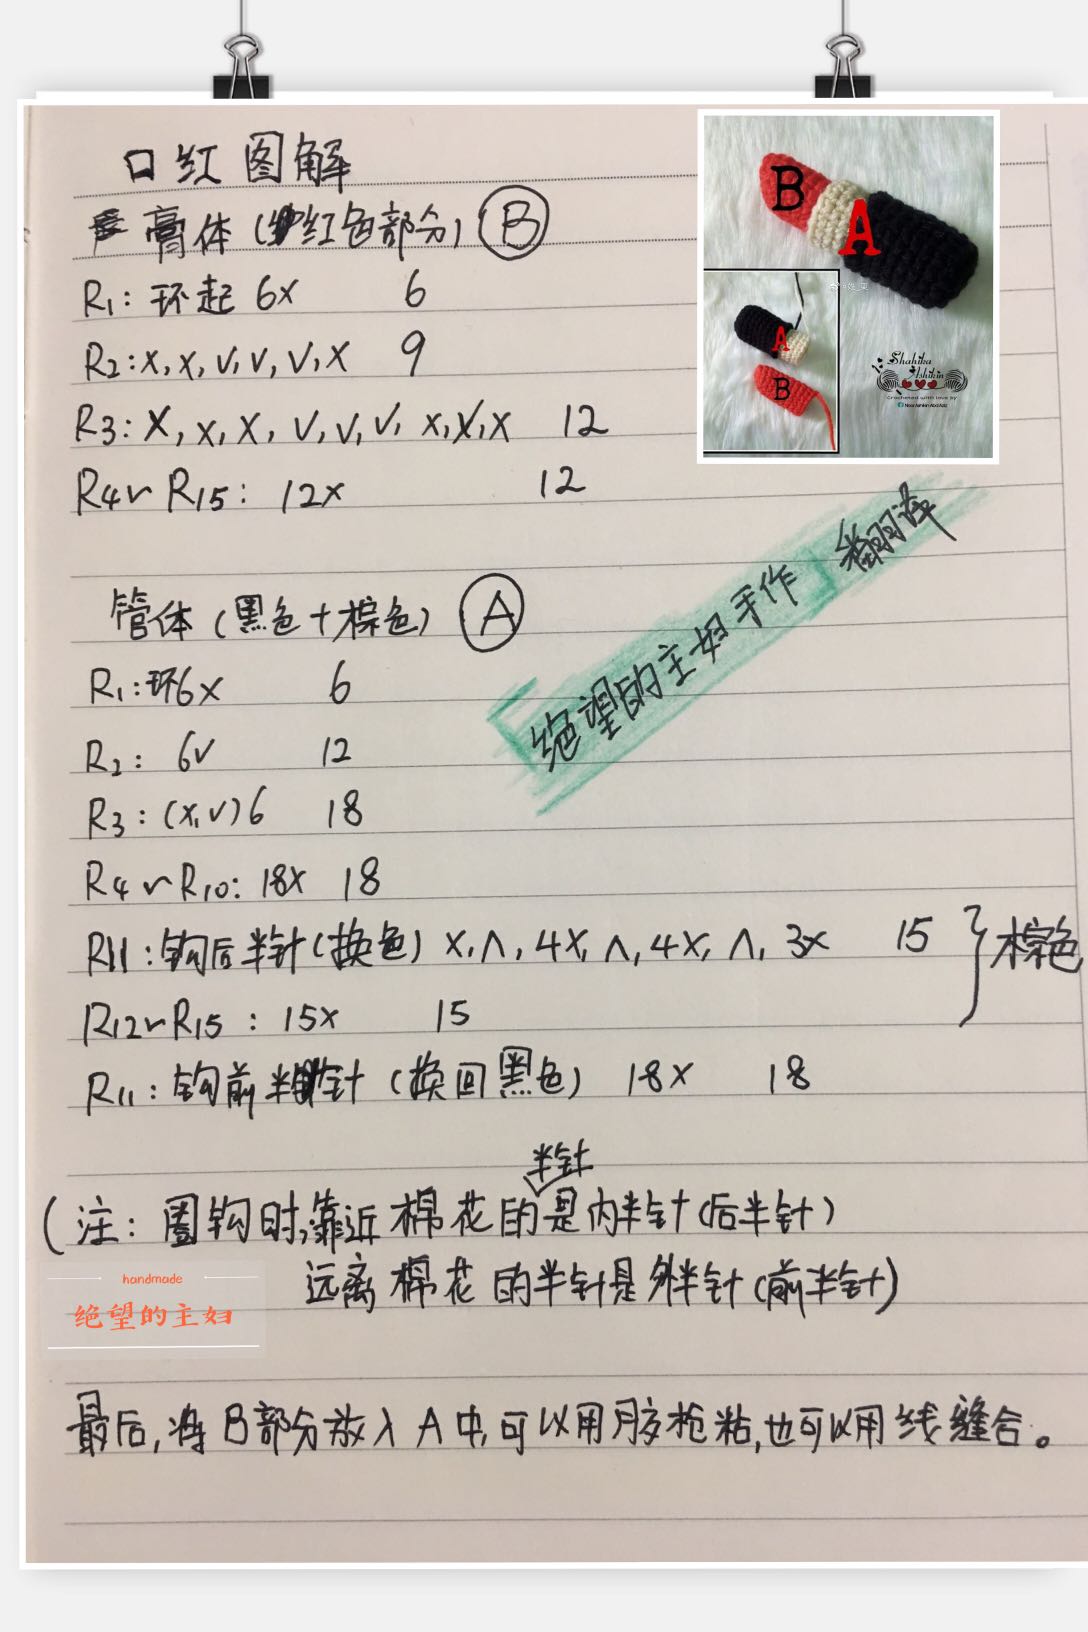 口红图解
膏体(红色部分) B
R1: 环起 6x 6
R2: x, x, v, v, v, x 9
R3: x, x, x, v, v, v, x, x, x 12
R4~R15: 12x 12
管体(黑色+棕色) A
R1: 环6x 6
R2: 6v 12
R3: (x, v)6 18
R4~R10: 18x 18
R11: 钩后半针(换色) x, ∧, 4x, ∧, 4x, ∧, 3x 15
R12~R15: 15x 15
} 棕色
R11: 钩前半针(换回黑色) 18x 18
(注: 圈钩时,靠近棉花的半针是内半针(后半针)
远离棉花的半针是外半针(前半针)
最后,将B部分放入A中,可以用胶枪粘,也可以用线缝合。
「绝望的主妇手作」翻译
B
A
A
B
Shahika
Ashikin
Crocheted with love by
handmade
绝望的主妇